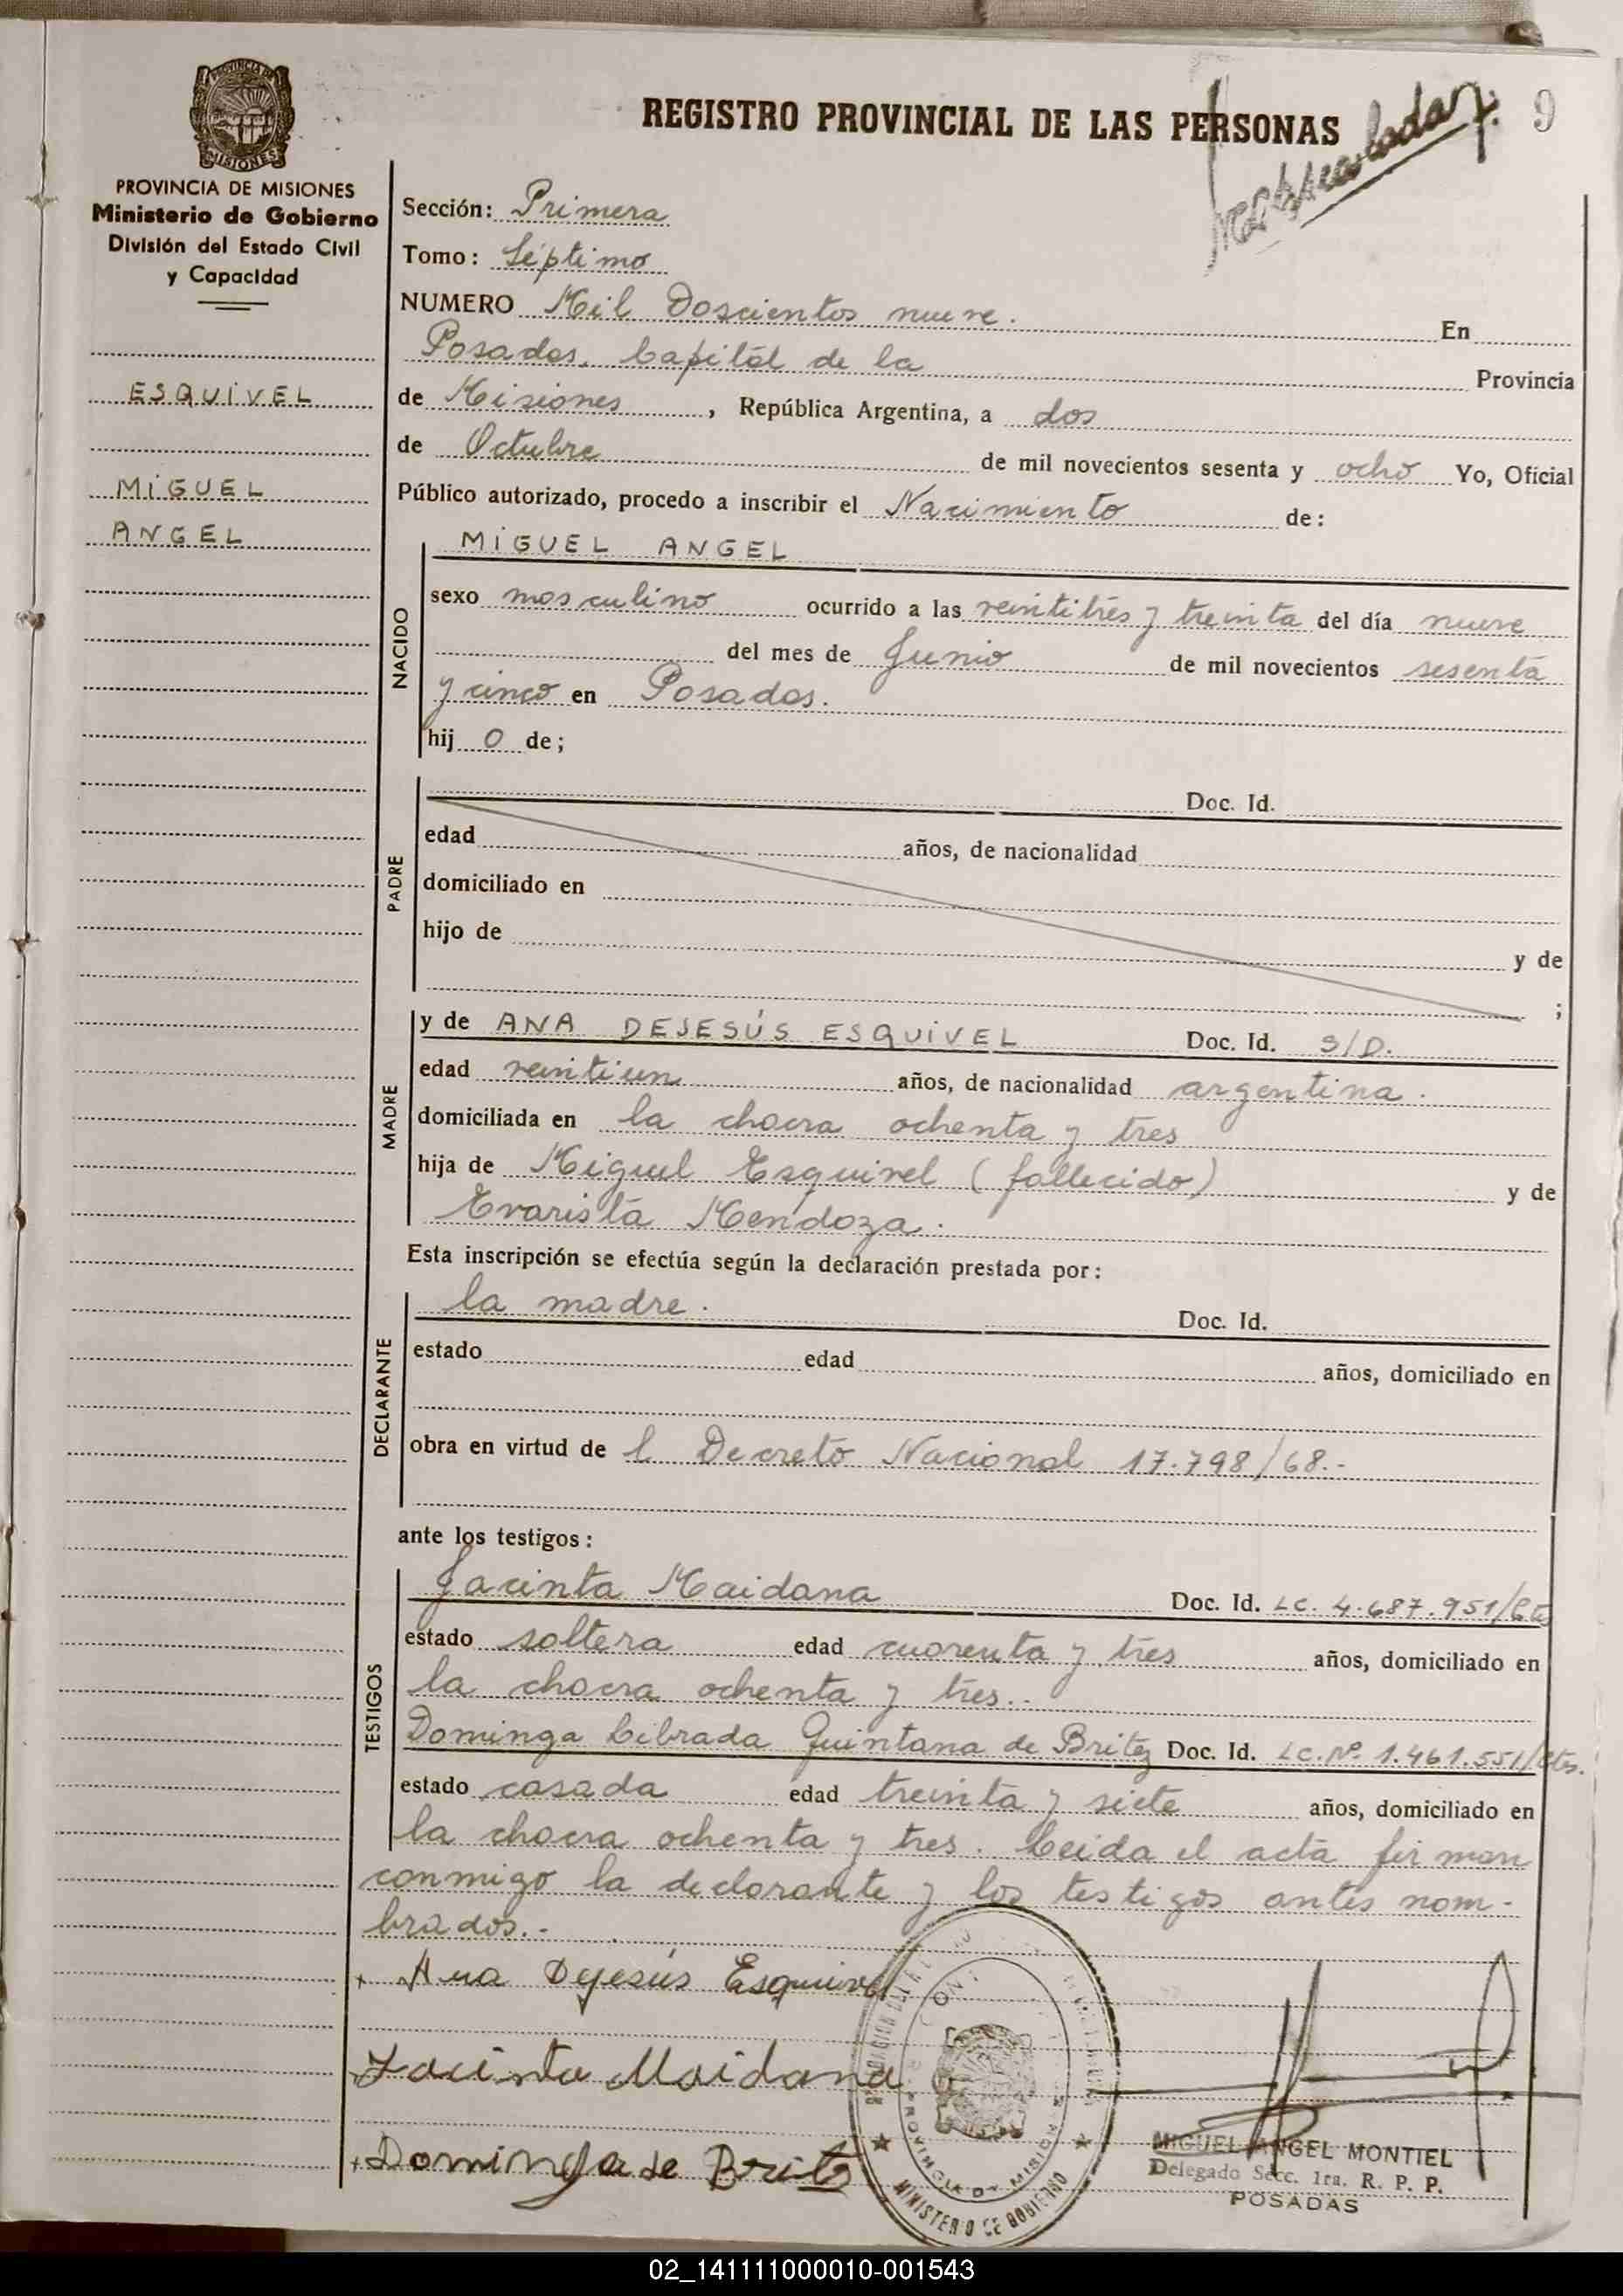 REGISTRO PROVINCIAL DE LAS PERSONAS
9
PROVINCIA DE MISIONES
Ministerio de Gobierno
División del Estado Civil
y Capacidad
ESQUIVEL
MIGUEL
ANGEL
Sección: Primera
Tomo: Séptimo
NUMERO Mil Doscientos nueve. En
Posadas, Capital de la Provincia
de Misiones, República Argentina, a dos
de Octubre de mil novecientos sesenta y ocho Yo, Oficial
Público autorizado, procedo a inscribir el Nacimiento de:
NACIDO
MIGUEL ANGEL
sexo masculino ocurrido a las veintitrés y treinta del día nueve
del mes de Junio de mil novecientos sesenta
y cinco en Posadas.
hij o de;
PADRE
Doc. Id.
edad años, de nacionalidad
domiciliado en
hijo de y de
;
MADRE
y de ANA DEJESÚS ESQUIVEL Doc. Id. S/D.
edad veintiun años, de nacionalidad argentina.
domiciliada en la chacra ochenta y tres
hija de Miguel Esquivel (fallecido) y de
Evarista Mendoza.
Esta inscripción se efectúa según la declaración prestada por:
DECLARANTE
la madre. Doc. Id.
estado edad años, domiciliado en
obra en virtud de l Decreto Nacional 17.798/68.-
ante los testigos:
TESTIGOS
Jacinta Maidana Doc. Id. LC. 4.687.951/Cts
estado soltera edad cuarenta y tres años, domiciliado en
la chacra ochenta y tres.
Dominga Librada Quintana de Britez Doc. Id. LC.Nº 1.461.551/Cts.
estado casada edad treinta y siete años, domiciliado en
la chacra ochenta y tres. Leida el acta firman
conmigo la declarante y los testigos antes nom-
brados.-
+ Ana Dejesús Esquivel
Jacinta Maidana
+Dominga de Brite
MINISTERIO DE GOBIERNO
PROVINCIA DE MISIONES
MIGUEL ANGEL MONTIEL
Delegado Secc. 1ra. R. P. P.
POSADAS
02_141111000010-001543